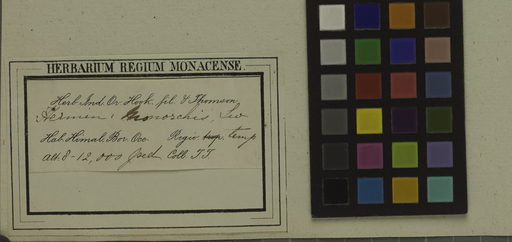 HERBARIUM REGIUM MONACENSE.
Herb. Ind. Or. Hook. fil. & Thomson.
Herminium Monorchis,
Hab. Himal. Bor. Occ. Regio trop. temp
alt. 8-12,000 ped. Coll. T.T.